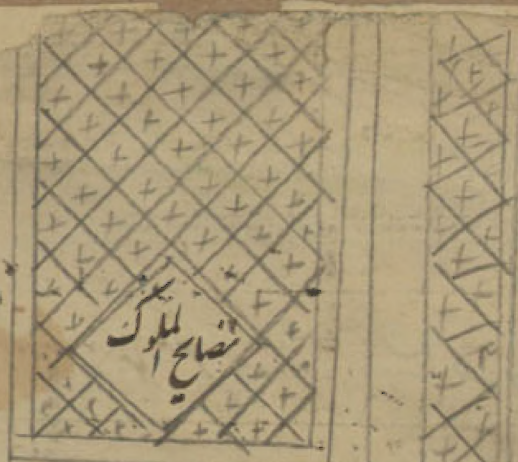 نصایح الملوک